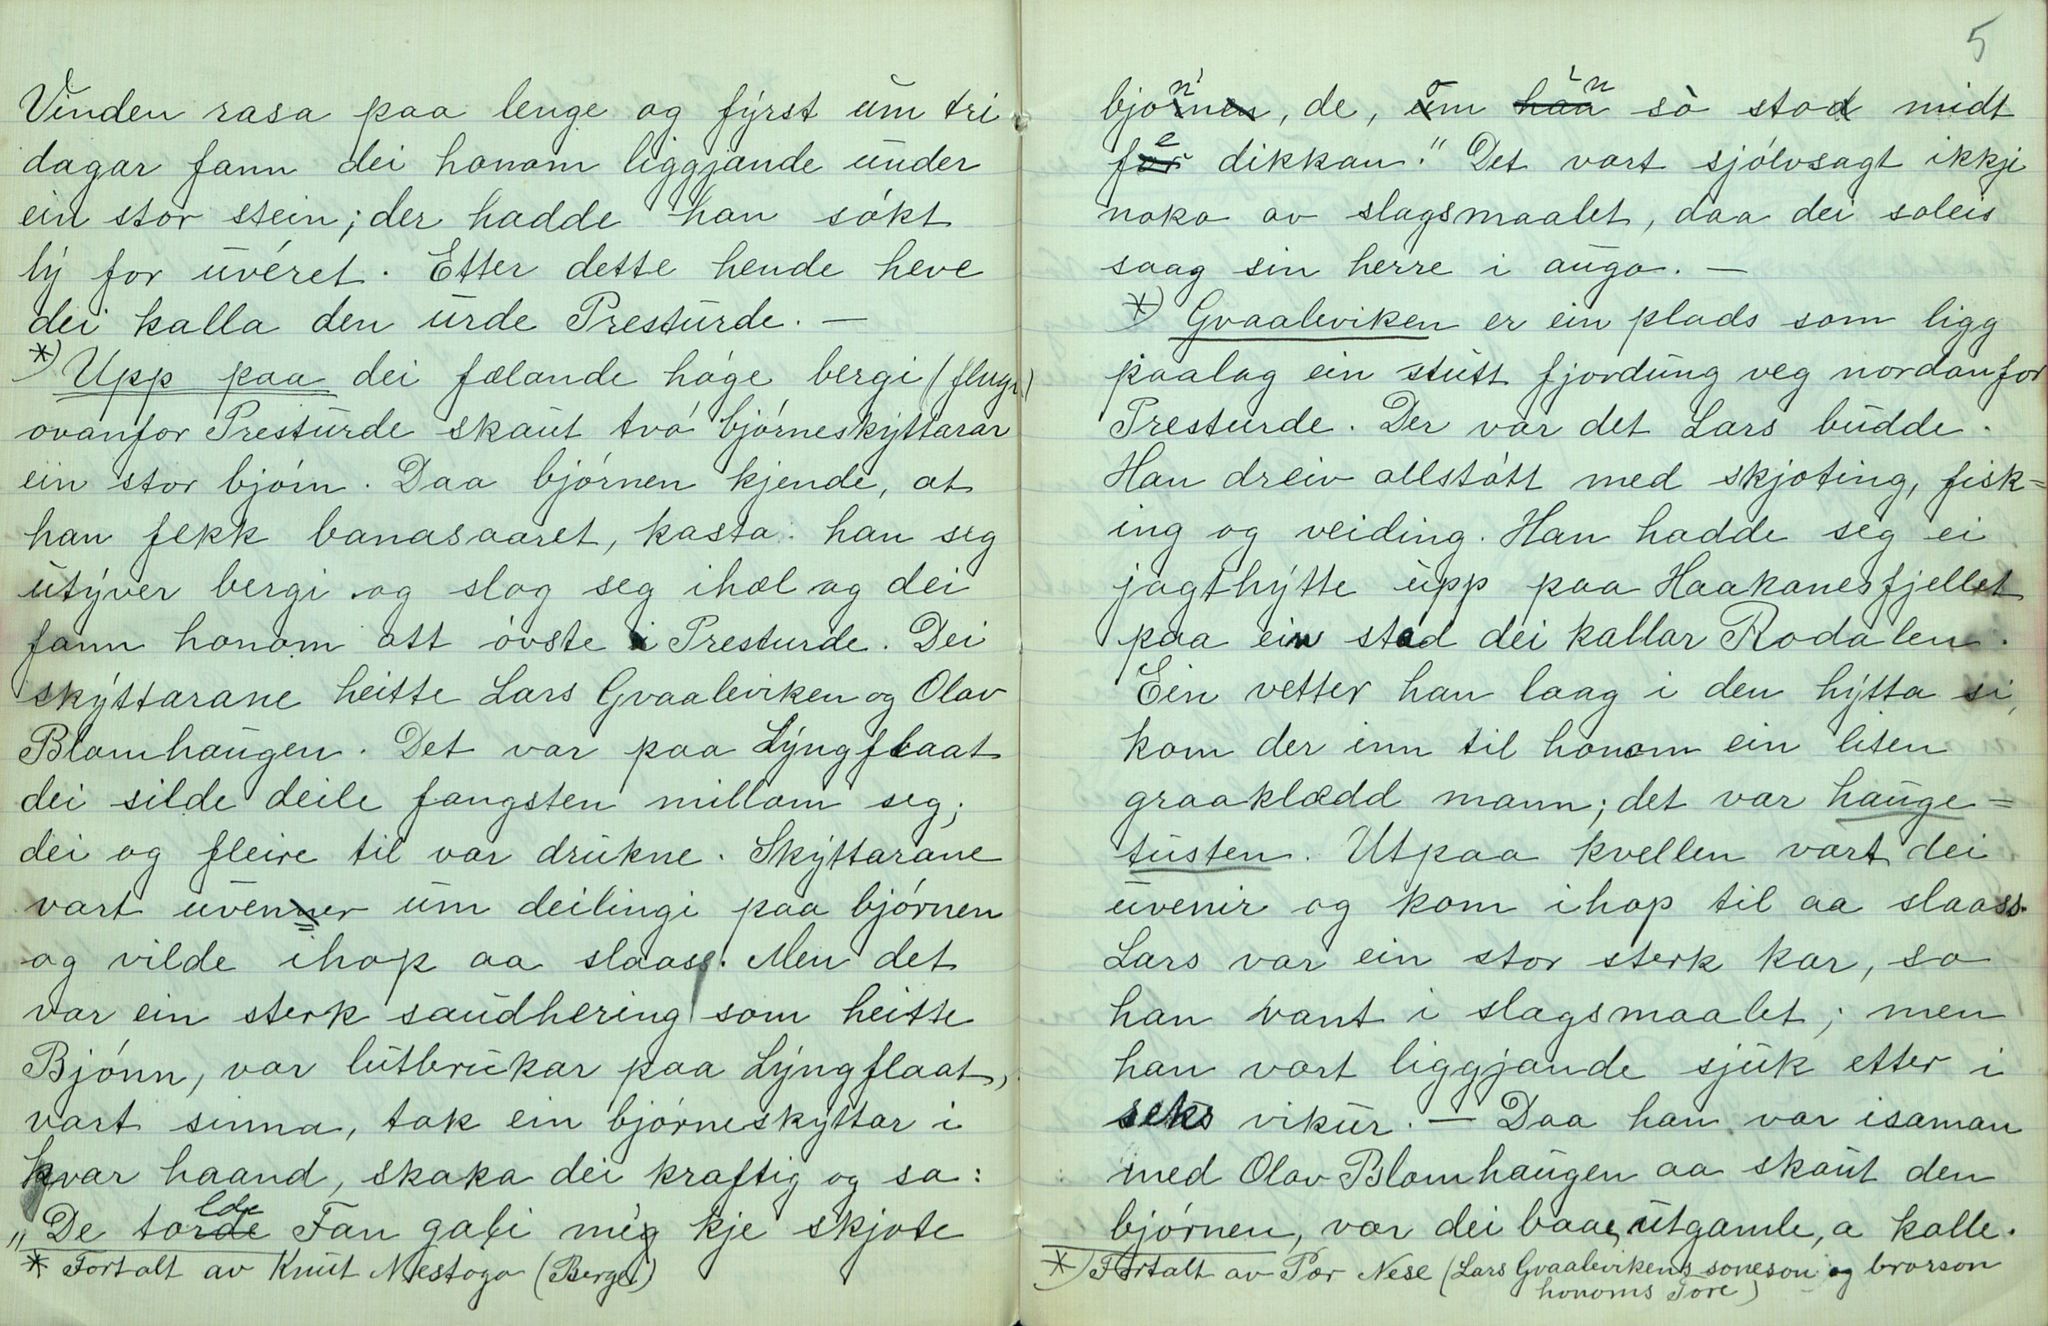 Vinden rasa paa lenge og fýrst um tri
dagar fann dei honom liggjande under
ein stor stein; der hadde han søkt
lý for uvéret. Etter dette hende heve
dei kalla den urde Presturde. —
*) Upp paa dei fælande høge bergi (flugi)
ovanfor Presturde skaut tvó bjørneskýttarar
ein stor bjørn. Daa bjørnen kjende, at
han fekk banasaaret, kasta han seg
utýver bergi og slog seg ihæl og dei
fann honom att øvste i Presturde. Dei
skýttarane heitte Lars Gvaaleviken og Olav
Blomhaugen. Det var paa Lýngflaat
dei silde deile fangsten millom seg;
dei og fleire til var drukne. Skýttarane
vart uvenner um deilingi paa bjørnen
og vilde ihop aa slaass. Men det
var ein sterk saudhering som heitte
Bjønn, var lutbrukar paa Lýngflaat,
vart sinna, tok ein bjørneskýttar i
kvar haand, skaka dei kraftig og sa:
lde
„De torde Fan gali még kje skjote
* Fortalt av Knut Nestogo (Berge)
5
n n
bjornen, de, um han so stod midt
e
for dikkan." Det vart sjølvsagt ikkje
noko av slagsmaalet, daa dei soleis
saag sin herre i augo. —
*) Gvaaleviken er ein plads som ligg
paalag ein stutt fjordung veg nordanfor
Presturde. Der var det Lars budde.
Han dreiv allstøtt med skjoting, fisk=
ing og veiding. Han hadde seg ei
jagthýtte upp paa Haakanesfjellet
paa ein stad dei kallar Rodalen.
Ein vetter han laag i den hýtta si,
kom der inn til honom ein liten
graaklædd mann; det var hauge=
tusten. Utpaa kvellen vart dei
uvenir og kom ihop til aa slaass.
Lars var ein stor sterk kar, so
han vant i slagsmaalet; men
han vart liggjande sjuk etter i
seks vikur. — Daa han var isaman
med Olav Blomhaugen aa skaut den
bjørnen, var dei baae utgamle, a kalle.
*) Fortalt av Pær Nese (Lars Gvaalevikens soneson og brorson
honoms Tore)